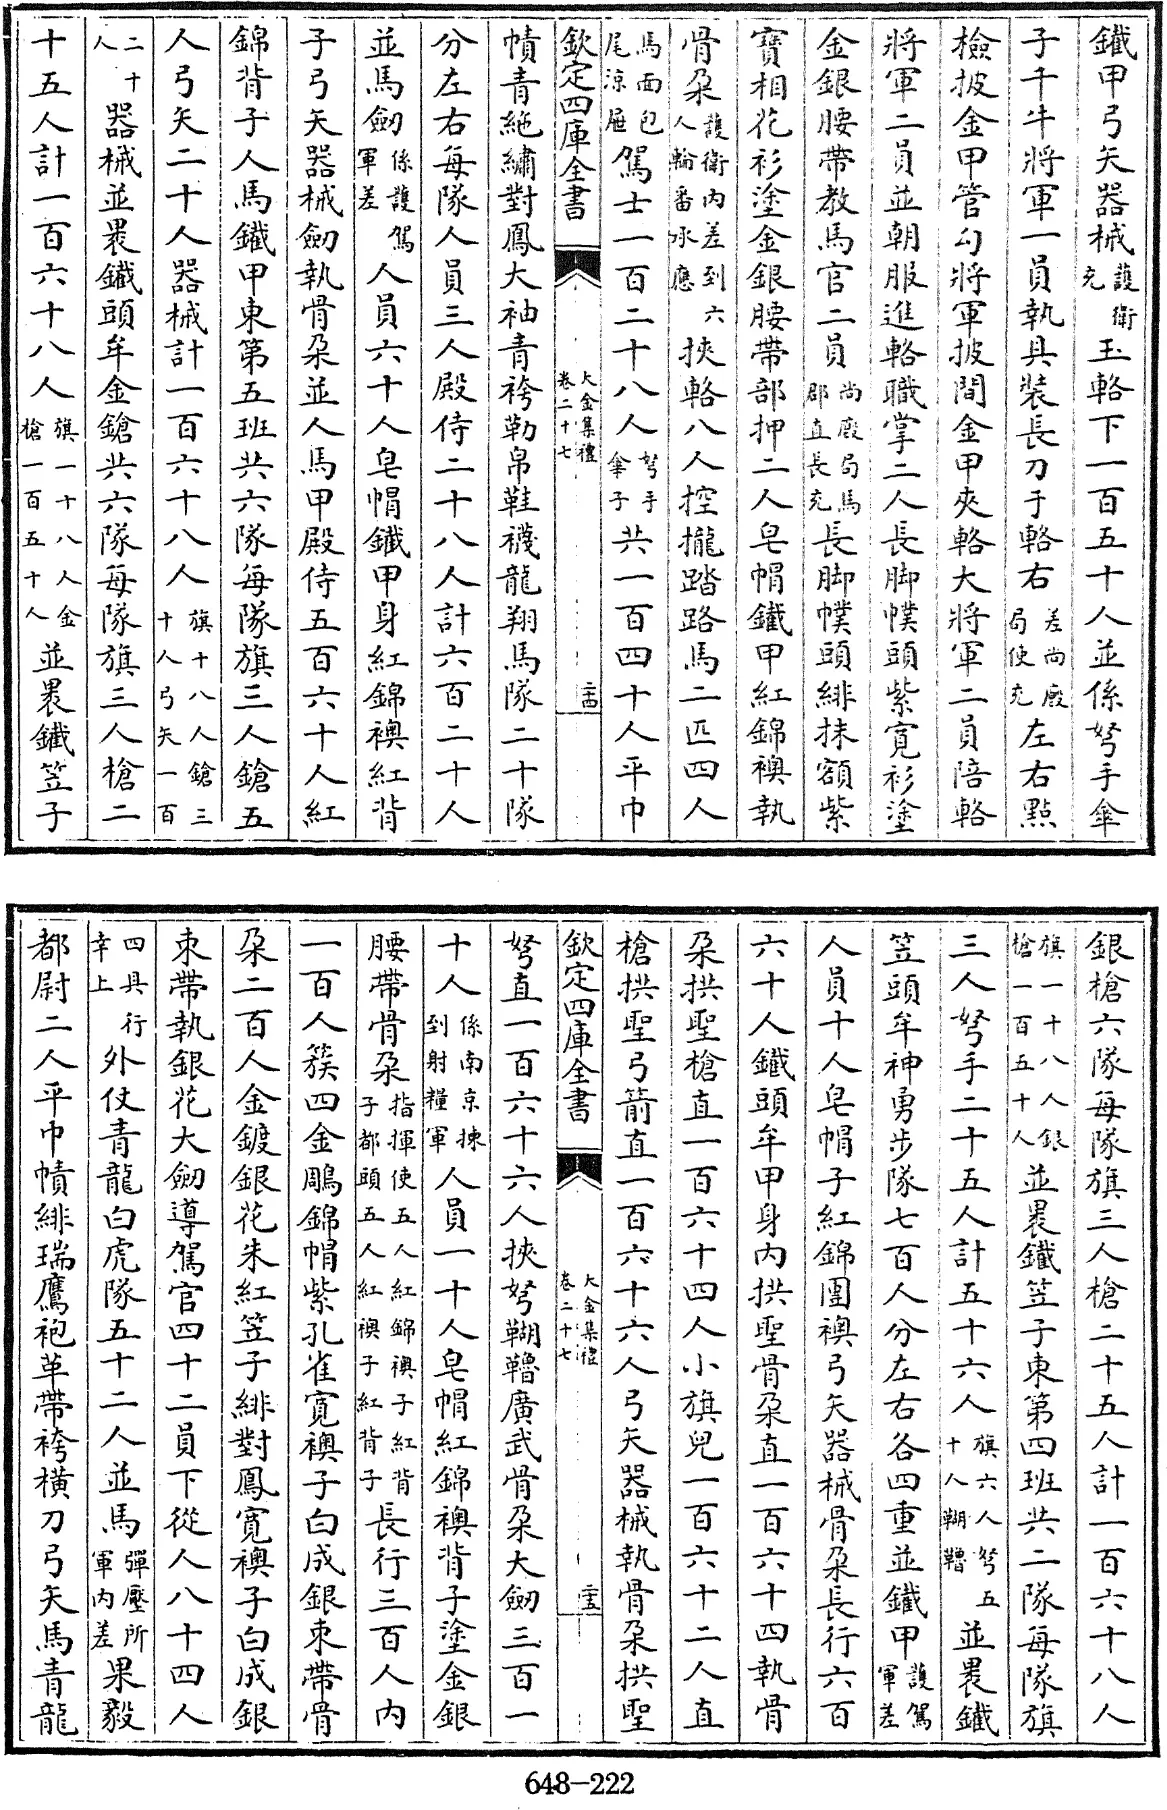 鐵甲弓矢器械護衛充玉輅下一百五十人並係弩手傘
子千牛將軍一員執具裝長刀于輅右差尚廄局使充左右㸃
檢披金甲管勾將軍披間金甲夾輅大將軍二員陪輅
將軍二員並朝服進輅職掌二人長脚幞頭紫寛衫塗
金銀腰帶教馬官二員尚廄局馬郡直長充長脚幞頭緋抹額紫
寶相花衫塗金銀腰帶部押二人皂帽鐵甲紅錦襖執
骨朶護衛內差到六人輪番承應挾輅八人控攏踏路馬二匹四人
馬面包尾涼屜駕士一百二十八人弩手傘子共一百四十人平巾
欽定四庫全書 大金集禮卷二十七 二十四
幘青絁繡對鳳大袖青袴勒帛鞋襪龍翔馬隊二十隊
分左右每隊人員三人殿侍二十八人計六百二十人
並馬劒係護駕軍差人員六十人皂帽鐵甲身紅錦襖紅背
子弓矢器械劒執骨朶並人馬甲殿侍五百六十人紅
錦背子人馬鐵甲東第五班共六隊每隊旗三人鎗五
人弓矢二十人器械計一百六十八人旗十八人鎗三十人弓矢一百
二十人器械並裹鐵頭牟金鎗共六隊每隊旗三人槍二
十五人計一百六十八人旗一十八人金槍一百五十人並裹鐵笠子
銀槍六隊每隊旗三人槍二十五人計一百六十八人
旗一十八人銀槍一百五十人並裹鐵笠子東第四班共二隊每隊旗
三人弩手二十五人計五十六人旗六人弩五十人鞬韥並裹鐵
笠頭牟神勇步隊七百人分左右各四重並鐵甲護駕軍差
人員十人皂帽子紅錦團襖弓矢器械骨朶長行六百
六十人鐵頭牟甲身內拱聖骨朶直一百六十四執骨
朶拱聖槍直一百六十四人小旗兒一百六十二人直
槍拱聖弓箭直一百六十六人弓矢器械執骨朶拱聖
欽定四庫全書 大金集禮卷二十七 二十五
弩直一百六十六人挾弩鞬韥廣武骨朶大劒三百一
十人係南京揀到射糧軍人員一十人皂帽紅錦襖背子塗金銀
腰帶骨朶指揮使五人紅錦襖子紅背子都頭五人紅襖子紅背子長行三百人內
一百人簇四金鵰錦帽紫孔雀寛襖子白成銀束帶骨
朶二百人金鍍銀花朱紅笠子緋對鳳寛襖子白成銀
束帶執銀花大劒導駕官四十二員下從人八十四人
四具行幸上外仗青龍白虎隊五十二人並馬彈壓所軍內差果毅
都尉二人平巾幘緋瑞鷹袍革帶袴橫刀弓矢馬青龍
648-222